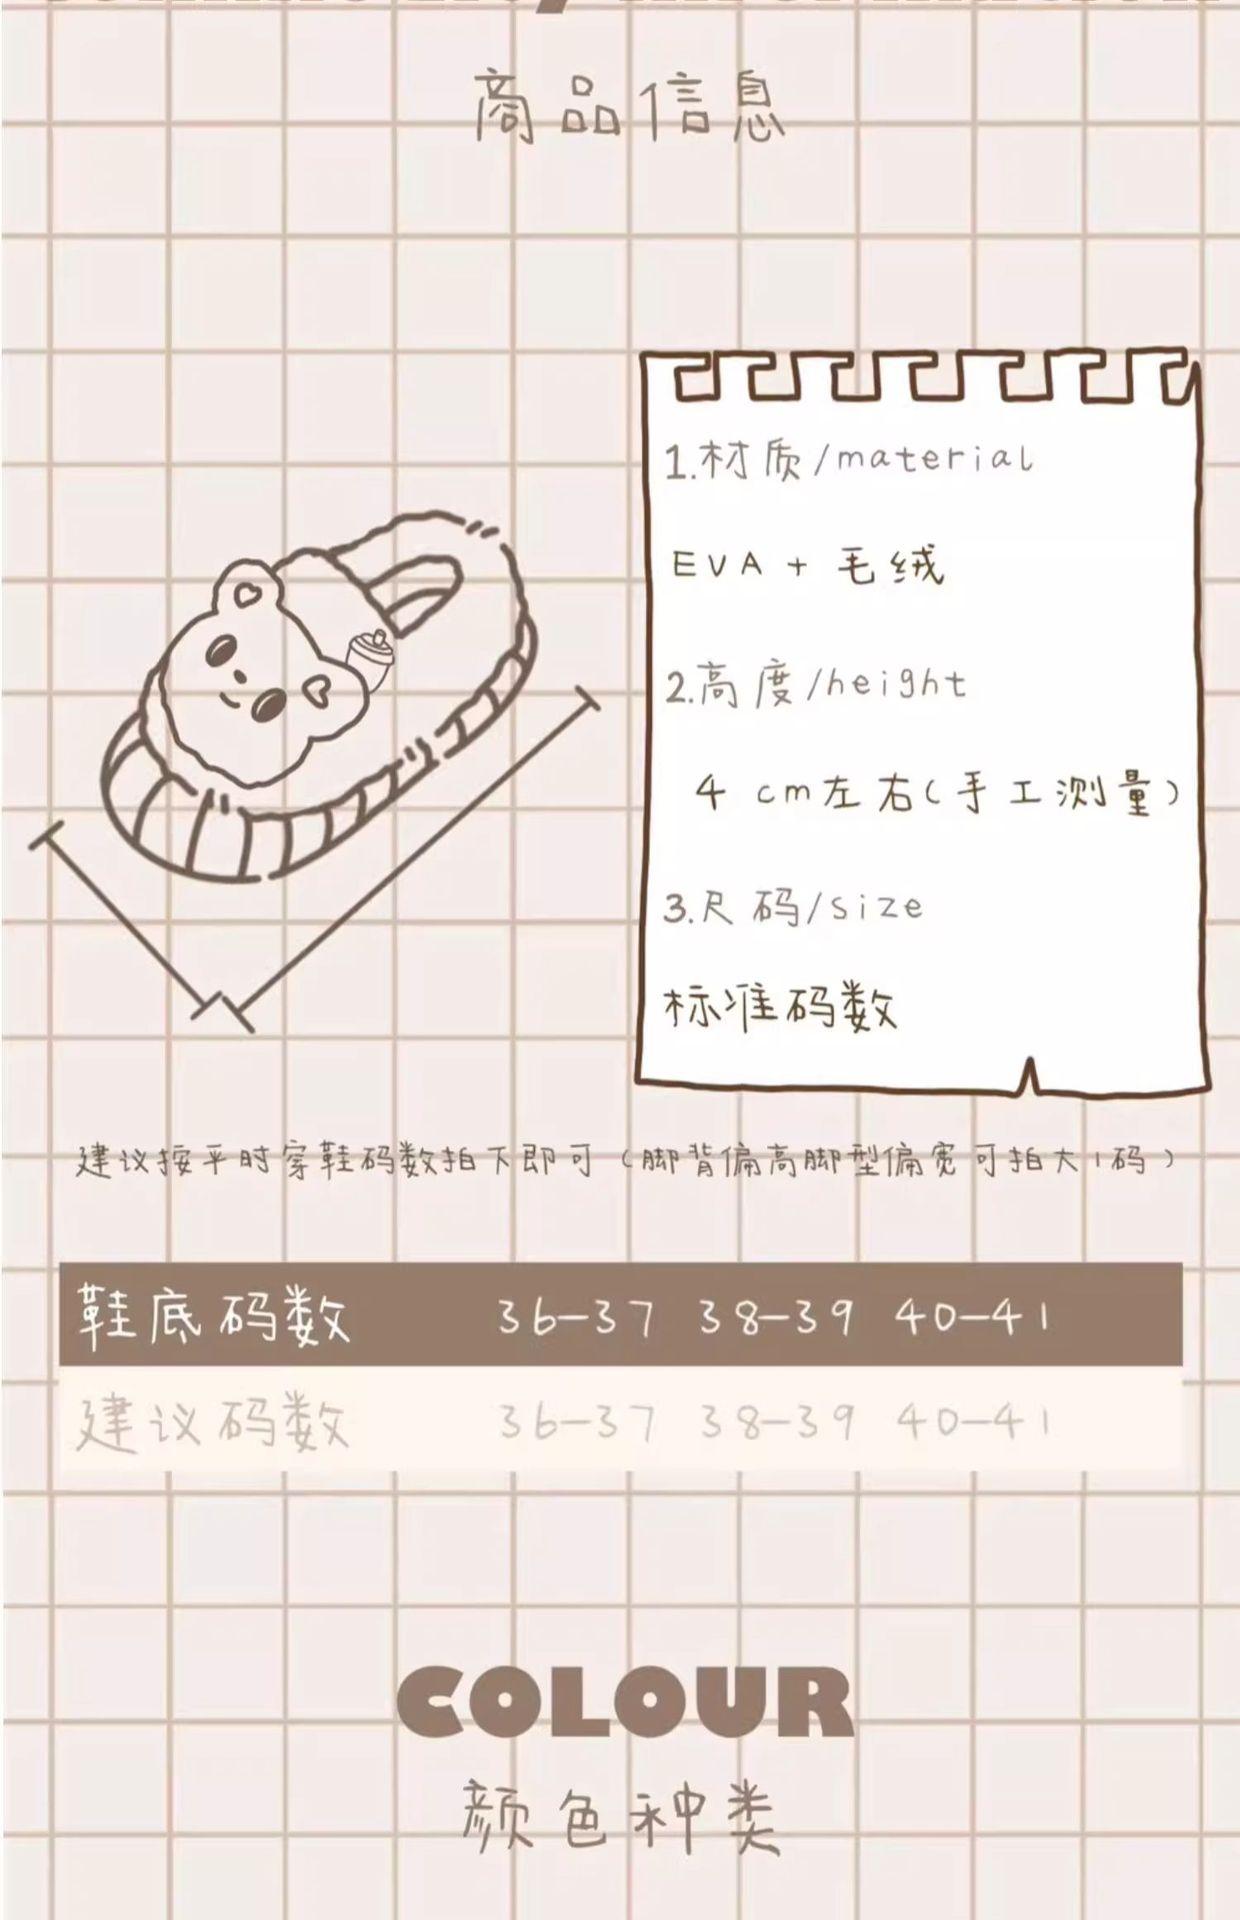 商品信息
1.材质/material
EVA + 毛绒
2.高度/height
4 cm左右(手工测量)
3.尺码/size
标准码数
建议按平时穿鞋码数拍下即可(脚背偏高脚型偏宽可拍大1码)
鞋底码数 36-37 38-39 40-41
建议码数 36-37 38-39 40-41
COLOUR
颜色种类